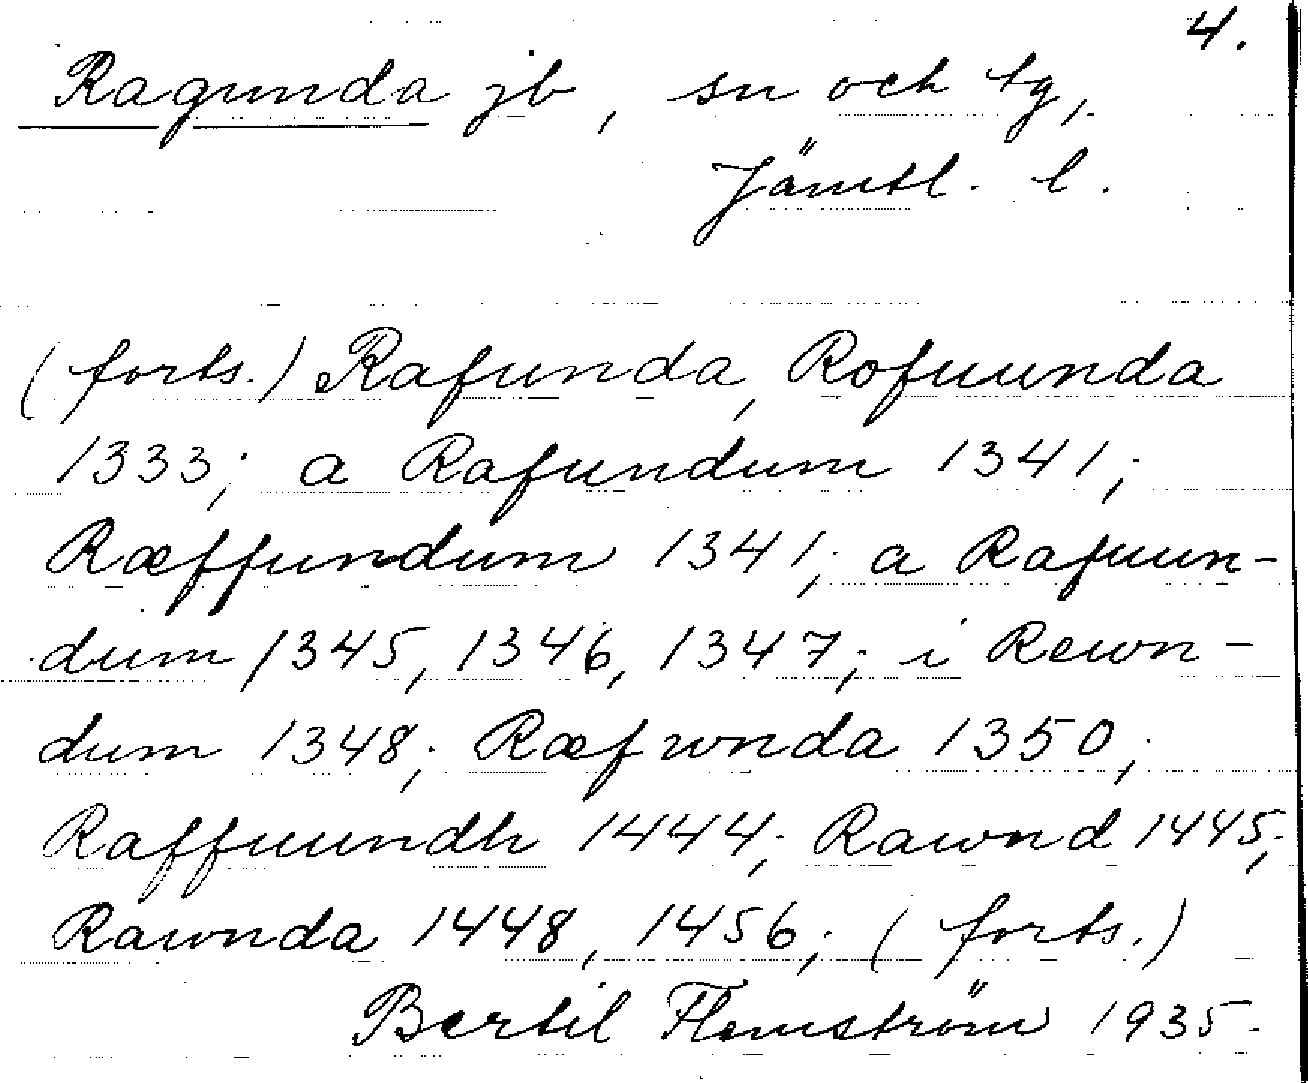 4.
Ragunda jb, sn och tg,
Jämtl. l.
(forts.) Rafunda, Rofuunda
1333; a Rafundum 1341;
Ræffundum 1341; a Rafuun-
dum 1345, 1346, 1347; i Rewn-
dum 1348; Ræfwnda 1350;
Raffuundh 1444; Rawnd 1445;
Rawnda 1448, 1456; (forts.)
Bertil Flemström 1935.